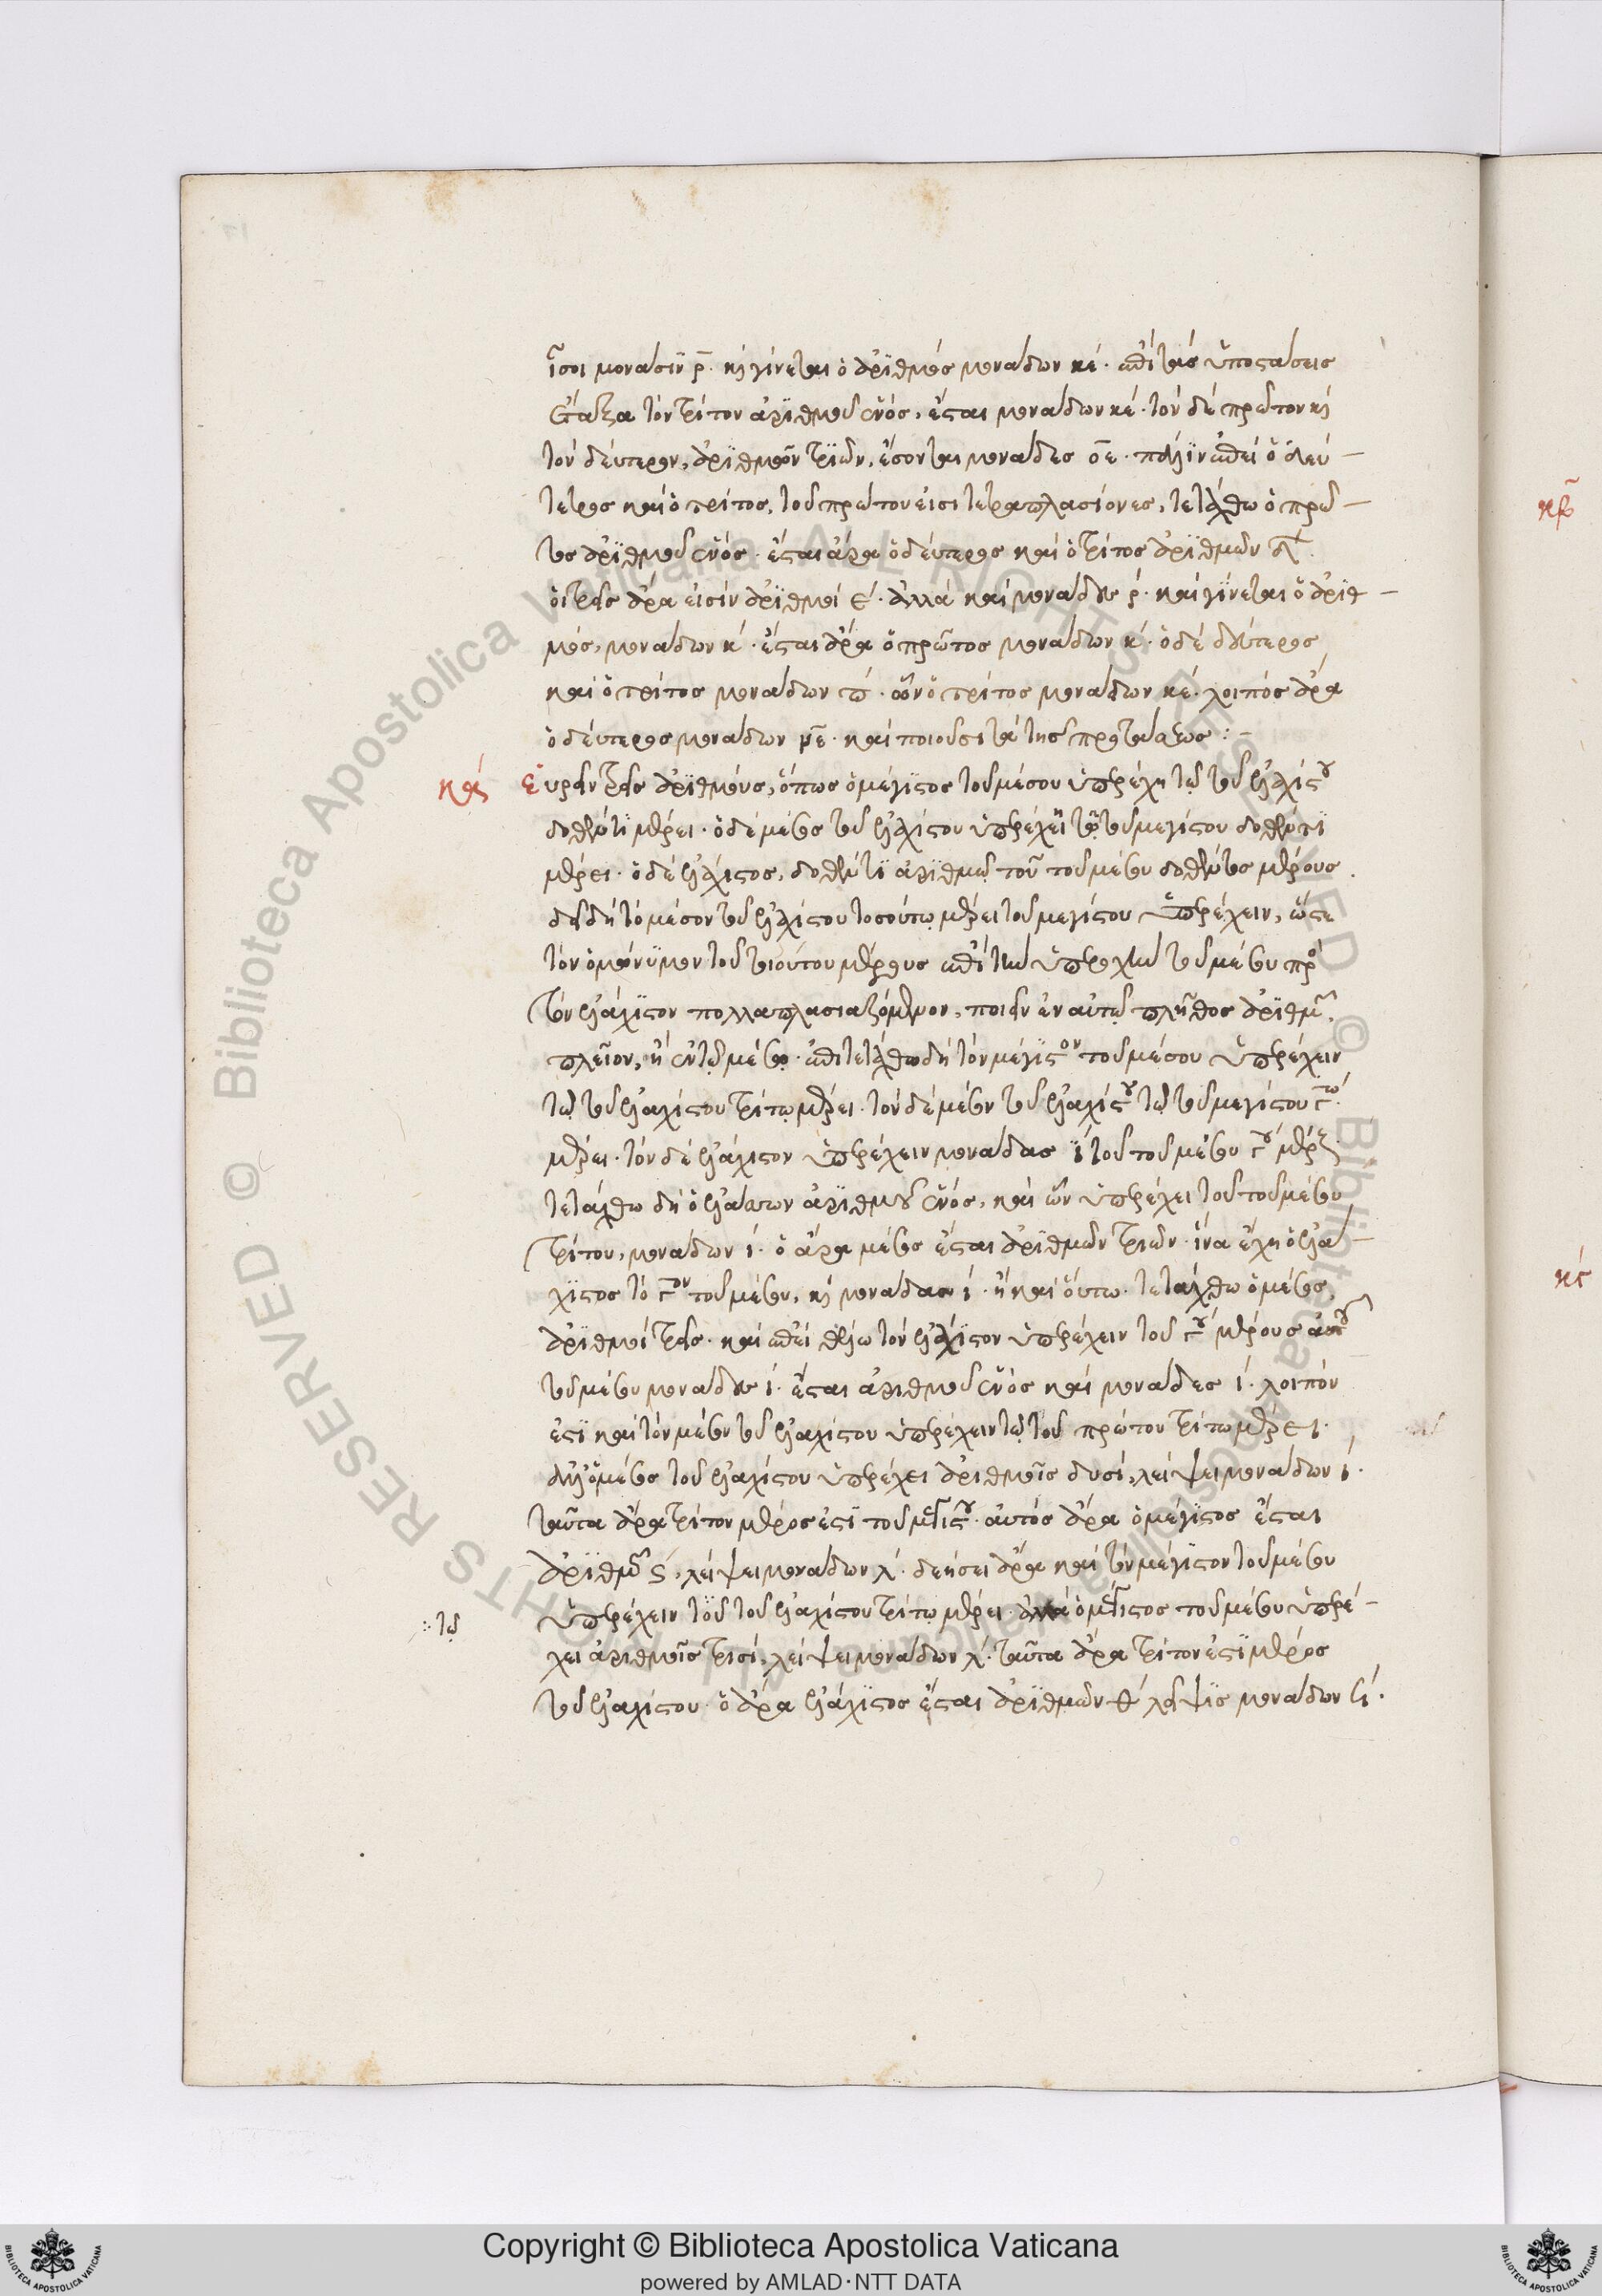 ἴσοι μονάσιν ρ̄. καὶ γίνεται ὁ ἀριθμὸς μονάδων κέ. ἐπὶ τὰς ὑποστάσεις
ἔταξα τὸν τρίτον ἀριθμοῦ ἑνός, ἔσται μονάδων κέ. τὸν δὲ πρῶτον καὶ
τὸν δεύτερον, ἀριθμῶν τριῶν, ἔσονται μονάδες ο̄ε. πάλιν ἐπεὶ ὁ δεύ–
τερος καὶ ὁ τρίτος, τοῦ πρώτου εἰσὶ τετραπλασίονες, τετάχθω ὁ πρῶ–
τος ἀριθμοῦ ἑνός. ἔσται ἄρα ὁ δεύτερος καὶ ὁ τρίτος ἀριθμῶν δ̄.
οἱ τρεῖς ἄρα εἰσὶν ἀριθμοὶ ε´. ἀλλὰ καὶ μονάδες ρ´. καὶ γίνεται ὁ ἀριθ–
μὸς, μονάδων κ´. ἔσται ἄρα ὁ πρῶτος μονάδων κ´. ὁ δὲ δεύτερος
καὶ ὁ τρίτος μονάδων π´. ὧν ὁ τρίτος μονάδων κέ. λοιπὸς ἄρα
ὁ δεύτερος μονάδων ν̄ε. καὶ ποιοῦσι τὰ τῆς προτάσεως :–
κα´ εὑρεῖν τρεῖς ἀριθμούς, ὅπως ὁ μέγιστος τοῦ μέσου ὑπερέχῃ τῷ τοῦ ἐλαχίστου
δοθέντι μέρει. ὁ δὲ μέσος τοῦ ἐλαχίστου ὑπερέχει τῷ τοῦ μεγίστου δοθέντι
μέρει. ὁ δὲ ἐλάχιστος, δοθέντι ἀριθμῷ τοῦ τοῦ μέσου δοθέντος μέρους.
δεῖ δὴ τὸ μέσον τοῦ ἐλαχίστου τοσούτῳ μέρει τοῦ μεγίστου ὑπερέχειν, ὥστε
τὸν ὁμώνυμον τοῦ τοιούτου μέρους ἐπὶ τὴν ὑπεροχὴν τοῦ μέσου πρὸ
τὸν ἐλάχιστον πολλαπλασιαζόμενον, ποιεῖν ἐν αὐτῷ πλῆθος ἀριθμῶν
πλεῖον, ἢ ἐν τῷ μέσῳ. ἐπιτετάχθω δὴ τὸν μέγιστον τοῦ μέσου ὑπερέχειν
τῷ τοῦ ἐλαχίστου τρίτῳ μέρει. τὸν δὲ μέσον τοῦ ἐλαχίστου τῷ τοῦ μεγίστου γ̄ῳ
μέρει. τὸν δὲ ἐλάχιστον ὑπερέχειν μονάδας ι´ τοῦ τοῦ μέσου γ̄ου μέρους
τετάχθω δὴ ὁ ἐλάσσων ἀριθμοῦ ἑνός, καὶ ὧν ὑπερέχει τοῦ τοῦ μέσου
τρίτου, μονάδων ι´. ὁ ἄρα μέσος ἔσται ἀριθμῶν τριῶν. ἵνα ἔχῃ ὁ ἐλά–
χιστος τὸ γ̄ον τοῦ μέσου, καὶ μονάδας ι´. ἢ καὶ οὕτω. τετάχθω ὁ μέσος,
ἀριθμοὶ τρεῖς. καὶ ἐπεὶ θέλω τὸν ἐλάχιστον ὑπερέχειν τοῦ γ̄ου μέρους αὐτοῦ
τοῦ μέσου μονάδες ι´. ἔσται ἀριθμοῦ ἑνὸς καὶ μονάδες ι´. λοιπόν
ἐστι καὶ τὸν μέσον τοῦ ἐλαχίστου ὑπερέχειν τῷ τοῦ πρώτου τρίτῳ μέρει.
ἀλλ᾽ ὁ μέσος τοῦ ἐλαχίστου ὑπερέχει ἀριθμοῖς δυσί, λείψει μονάδων ι´.
ταῦτα ἄρα τρίτον μέρος ἐστὶ τοῦ μεγίστου. αὐτὸς ἄρα ὁ μέγιστος ἔσται
ἀριθμῶν ς´, λείψει μονάδων λ´. δεήσει ἄρα καὶ τὸν μέγιστον τοῦ μέσου
:· τῷ ὑπερέχειν τοῦ τοῦ ἐλαχίστου τρίτῳ μέρει. ἀλλὰ ὁ μέγιστος τοῦ μέσου ὑπερέ–
χει ἀριθμοῖς τρισί, λείψει μονάδων λ´. ταῦτα ἄρα τρίτον ἐστὶ μέρος
τοῦ ἐλαχίστου. ὁ ἄρα ἐλάχιστος ἔσται ἀριθμῶν θ´ λείψις μονάδων ϟ´.
κβ
κς
Copyright © Biblioteca Apostolica Vaticana
powered by AMLAD·NTT DATA